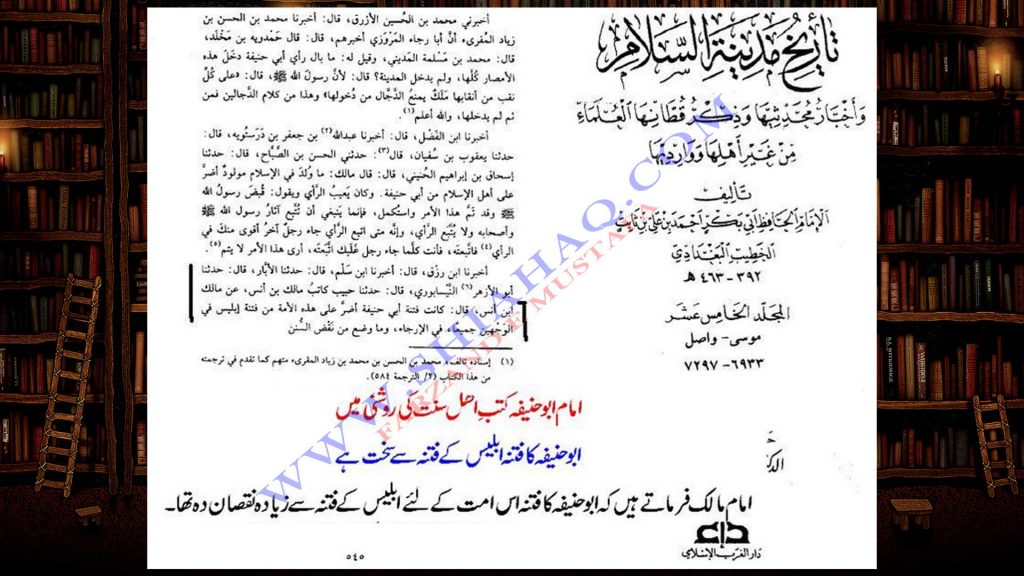 أخبرني محمد بن الحُسين الأزرق، قال: أخبرنا محمد بن الحسن بن
زياد المُقرىء أنَّ أبا رجاء المَرْوَزي أخبرهم، قال: قال حَمْدويه بن مَخْلَد،
قال: محمد بن مَسْلمة المَديني، وقيل له: ما بال رأي أبي حنيفة دخلَ هذه
الأمصار كُلَّها، ولم يدخل المدينة؟ قال: لأنَّ رسولُ الله ﷺ، قال: «على كُلِّ
نقب من أنقابها مَلَكٌ يمنعُ الدَّجال من دُخولها» وهذا من كلام الدَّجالين فمن
ثم لم يدخلها، والله أعلم(١).
أخبرنا ابن الفَضْل، قال: أخبرنا عبدالله(٢) بن جعفر بن دَرَستُويه، قال:
حدثنا يعقوب بن سُفيان، قال(٣): حدثني الحسن بن الصَّبَّاح، قال: حدثنا
إسحاق بن إبراهيم الحُنَيني، قال: قال مالك: ما وُلدَ في الإسلام مولودٌ أضرَّ
على أهل الإسلام من أبي حنيفة. وكان يَعيبُ الرَّأي ويقول: قُبضَ رسولُ الله
ﷺ وقد تمَّ هذا الأمر واستُكمل، فإنما ينبغي أن تُتَّبع آثارُ رسول الله ﷺ
وأصحابه ولا يُتَّبَع الرَّأي، وإنَّه متى اتبع الرَّأي جاء رجلٌ آخر أقوى منكَ في
الرأي(٤) فاتَّبعتَهُ، فأنت كلَّما جاء رجل غَلَبك اتَّبعْتَه، أرى هذا الأمر لا يتم(٥).
أخبرنا ابن رزق، قال: أخبرنا ابن سَلْم، قال: حدثنا الأبَّار، قال: حدثنا
أبو الأزهر(٦) النَّيسابوري، قال: حدثنا حبيب كاتبُ مالك بن أنس، عن مالك
ابن أنس، قال: كانت فتنة أبي حنيفة أضرَّ على هذه الأمة من فتنة إبليس في
الوَجْهين جميعًا، في الإرجاء، وما وضع من نَقْض السُّنن
(١) إسناده تالف، محمد بن الحسن بن محمد بن زياد المقرىء متهم كما تقدم في ترجمته
من هذا الكتاب (٢/ الترجمة ٥٨٤).
تأريخ مدينة السلام
وأخبار محدثيها وذكر قطانها العلماء
من غير أهلها ووارديها
تأليف
الإمام الحافظ أبي بكر أحمد بن علي بن ثابت
الخطيب البغدادي
٣٩٢ - ٤٦٣ هـ
المجلد الخامس عشر
موسى - واصل
٦٩٣٣ - ٧٢٩٧
امام ابو حنیفہ کتب اھل سنت کی روشنی میں
ابو حنیفہ کا فتنہ ابلیس کے فتنہ سے سخت ہے
امام مالک فرماتے ہیں کہ ابو حنیفہ کا فتنہ اس امت کے لئے ابلیس کے فتنہ سے زیادہ نقصان دہ تھا۔
دار الغرب الإسلامي
٥٤٥
WWW.SHIAHAQ.COM
FARZAND E MUSTAFA